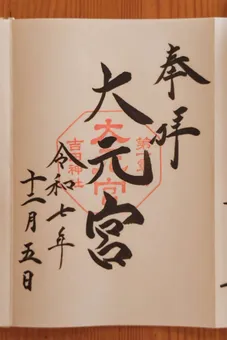 奉拝
大元宮
大元宮
吉田神社
令和七年
十二月五日